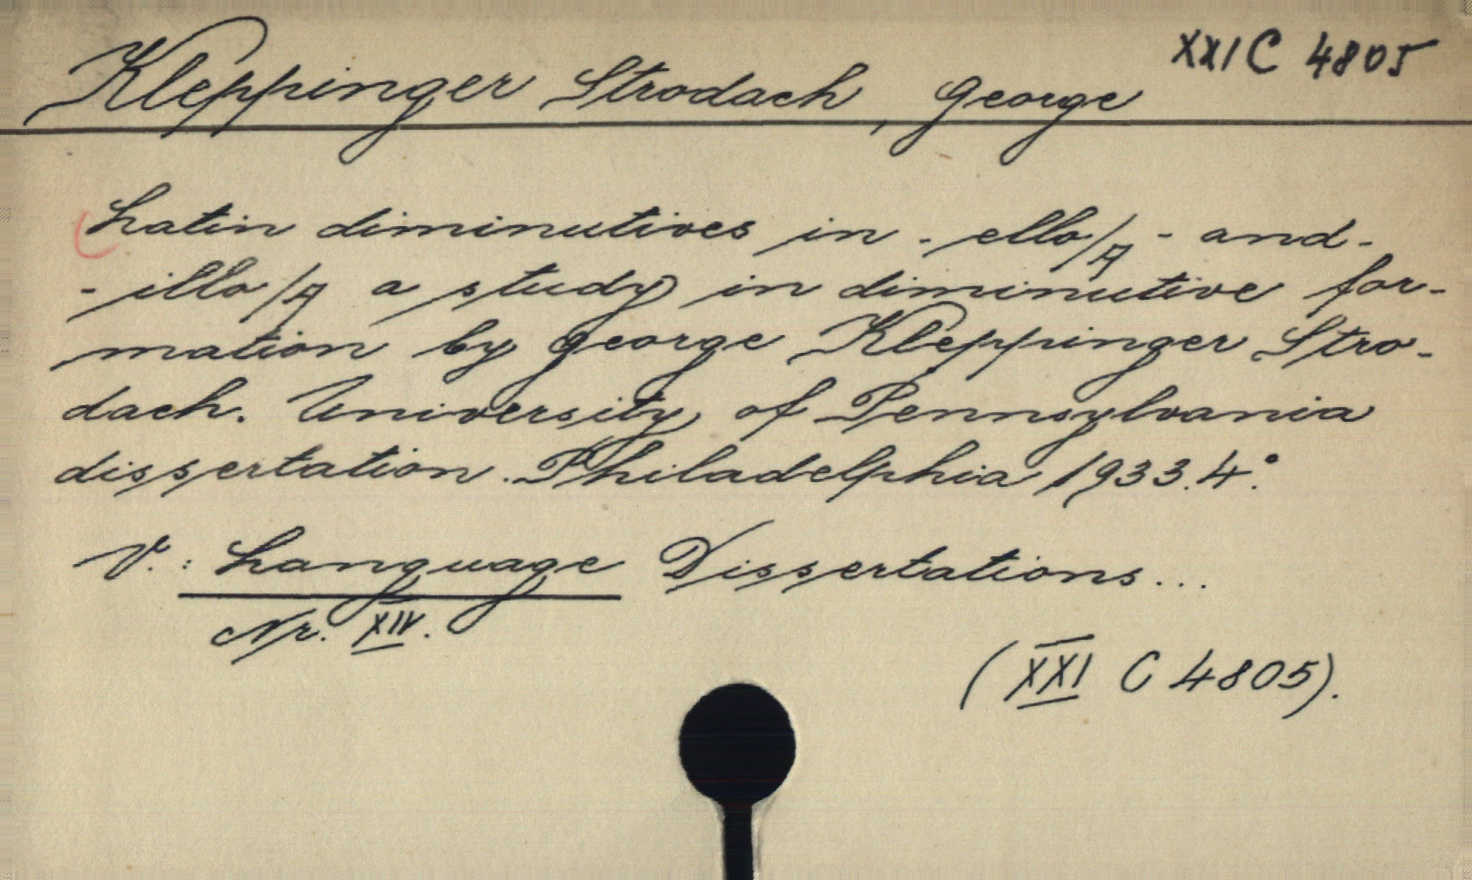 XXI C 4805
Kleppinger Strodach, George
Latin diminutives in - ello/a - and -
- illo/a a study in diminutive for-
mation by George Kleppinger Stro-
dach. University of Pennsylvania
dissertation. Philadelphia 1933. 4°.
V.: Language Dissertations...
Nr. XIV.
(XXI C 4805).